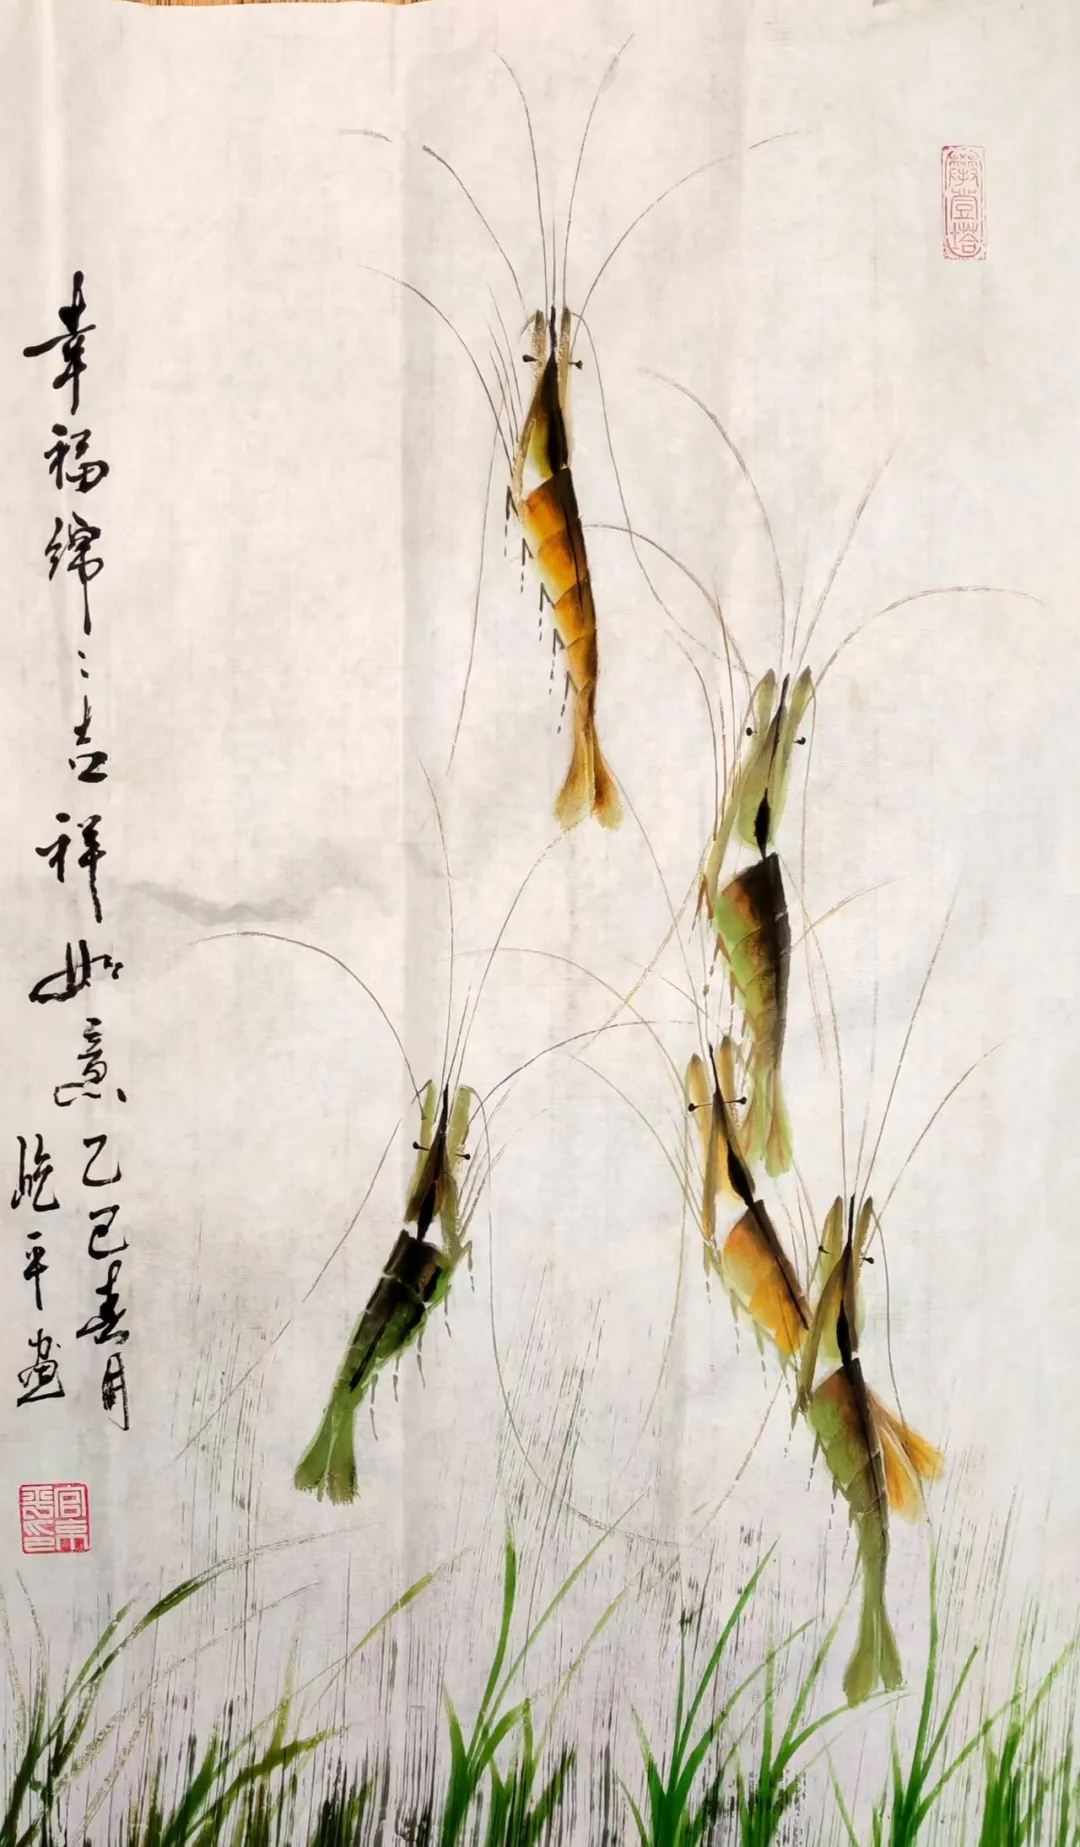 幸福绵〻吉祥如意乙巳春月
平画